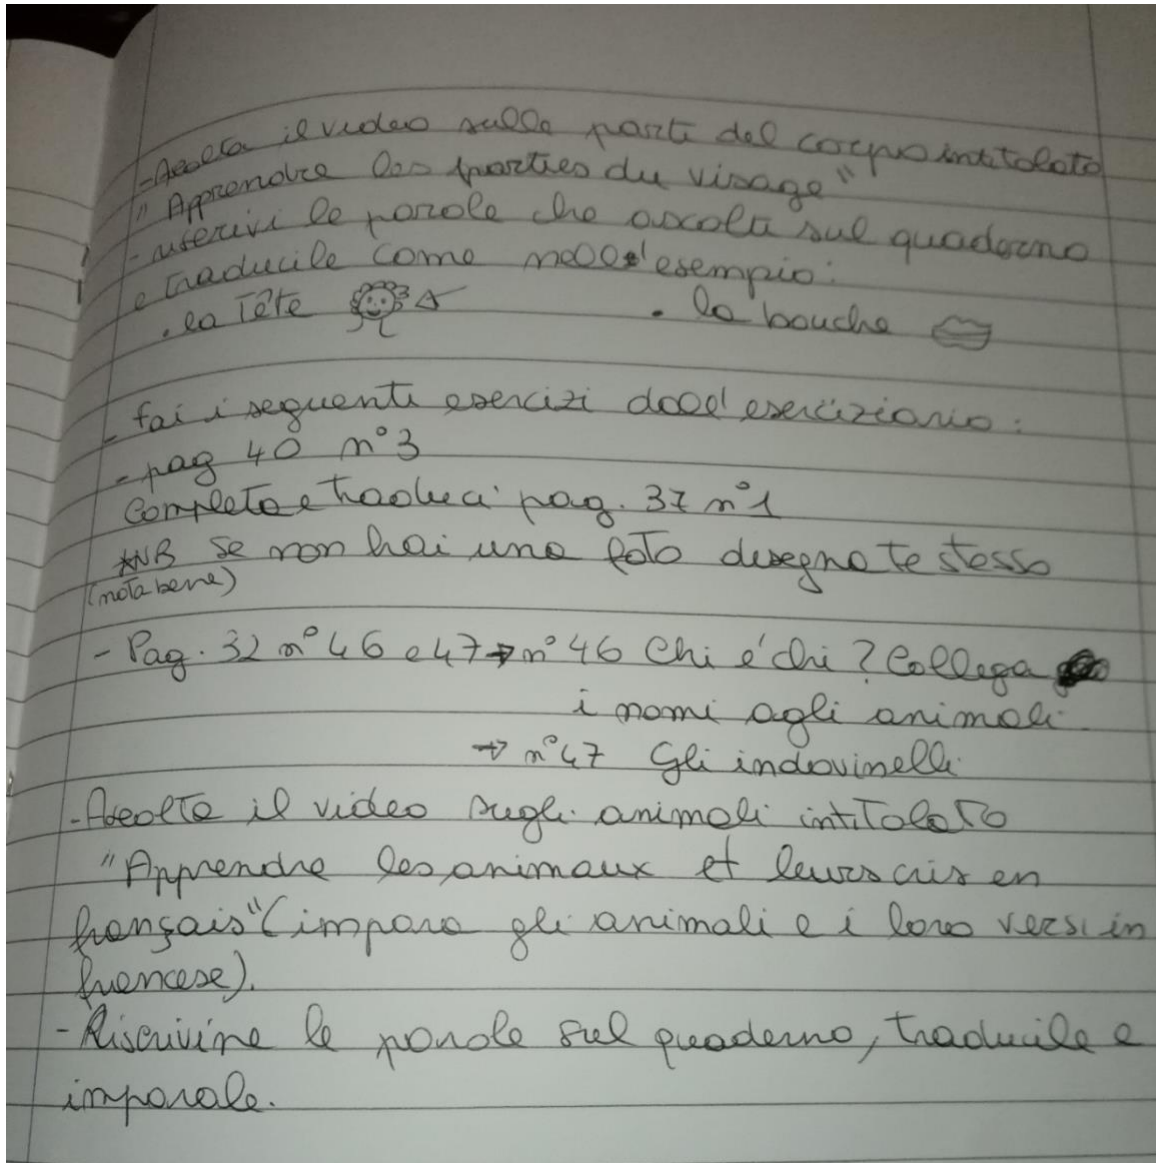 - Ascolta il video sulle parti del corpo intitolato
"Apprendre les parties du visage"
- riscrivi le parole che ascolti sul quaderno
e traducile come nell'esempio:
. la Tête . la bouche
- fai i seguenti esercizi dall'eserciziario:
- pag 40 n°3
Completa e traduci pag. 37 n°1
*NB se non hai una foto disegna te stesso
(nota bene)
- Pag. 32 n° 46 e 47 → n° 46 Chi é chi? Collega
i nomi agli animali
→ n°47 Gli indovinelli
- Ascolta il video sugli animali intitolato
"Apprendre les animaux et leurs cris en
français" (impara gli animali e i loro versi in
francese).
- Riscrivine le parole sul quaderno, traducile e
imparale.